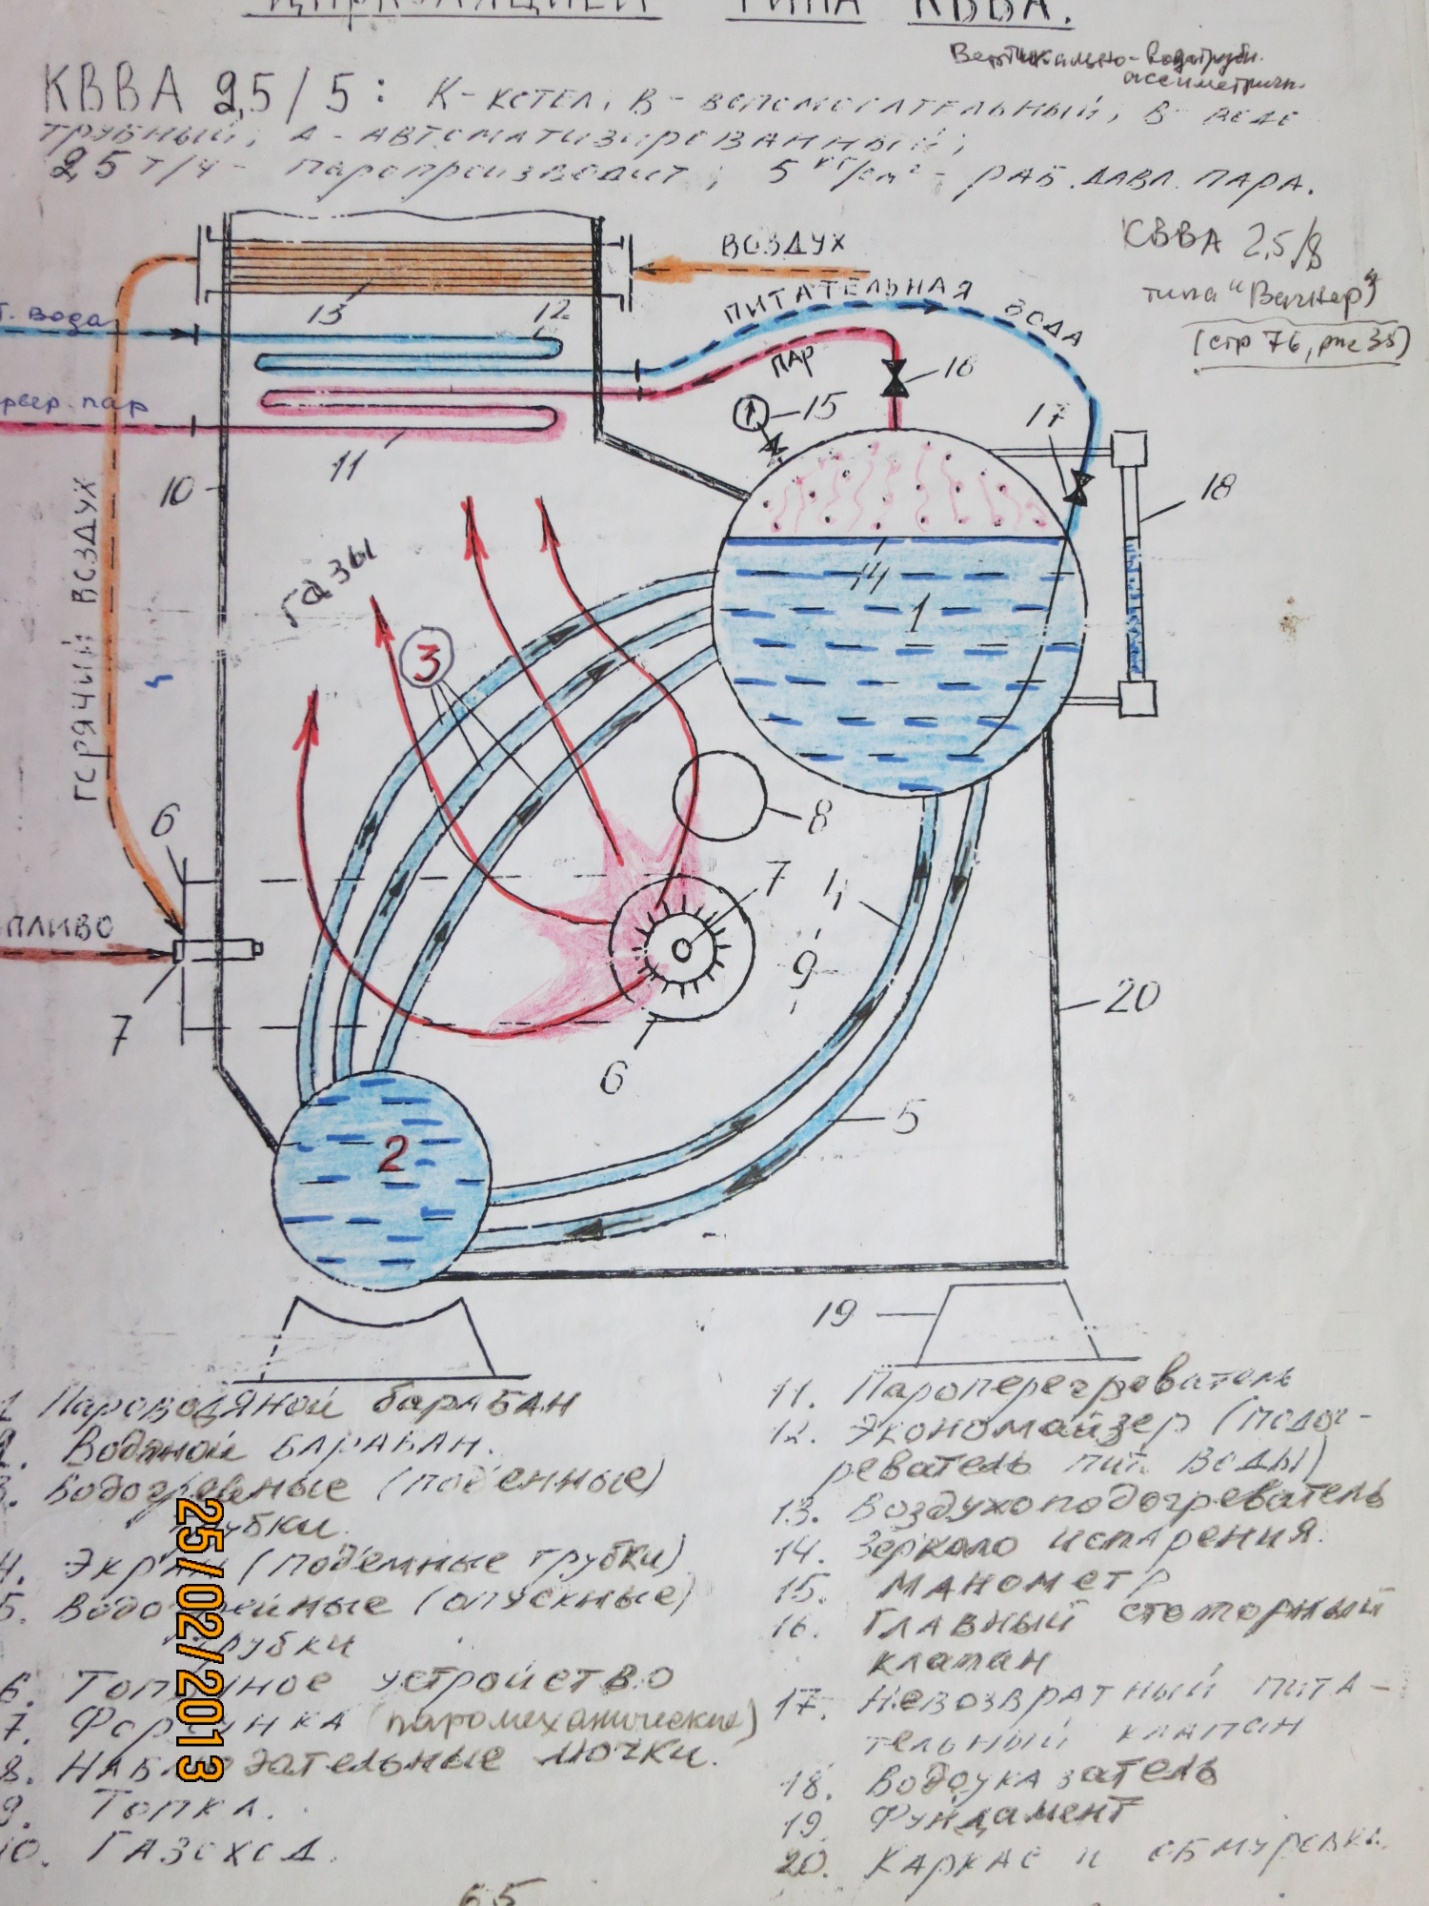 ТИПА КВВА.
Вертикально-водотрубн.
ассиметричн.
КВВА 2,5/5: К-КОТЕЛ, В-ВСПОМОГАТЕЛЬНЫЙ, В-ВОДО
ТРУБНЫЙ, А-АВТОМАТИЗИРОВАННЫЙ;
2,5 Т/Ч - паропроизводит; 5 кг/см² - РАБ. ДАВЛ. ПАРА.
КВВА 2,5/8
типа "Вагнер"
(стр 76, рис 35)
ВОЗДУХ
ПИТАТЕЛЬНАЯ ВОДА
13
12
т. вода
ПАР
16
15
17
пар
11
10
18
ГОРЯЧИЙ ВОЗДУХ
газы
14
1
3
8
6
7
4
ПЛИВО
9
20
7
6
5
2
19
1 Пароводяной барабан
2. Водяной БАРАБАН.
3. Водогрейные (под'емные)
трубки.
4. Экран (под'емные трубки)
5. Водогрейные (опускные)
трубки
6. Топочное устройство
7. Форсунка (паромеханические)
8. НАБЛюдательные лючки.
9. Топка.
10. ГАЗОХОД.
11. Пароперегреватель
12. Экономайзер (подог-
реватель пит. воды)
13. Воздухоподогреватель
14. Зеркало испарения.
15. МАНОМЕТР
16. ГЛАВНЫЙ стопорный
клапан
17. Невозвратный пита-
тельный клапан
18. Водоуказатель
19. Фундамент
20. Каркас и обмуровка.
65
25/02/2013